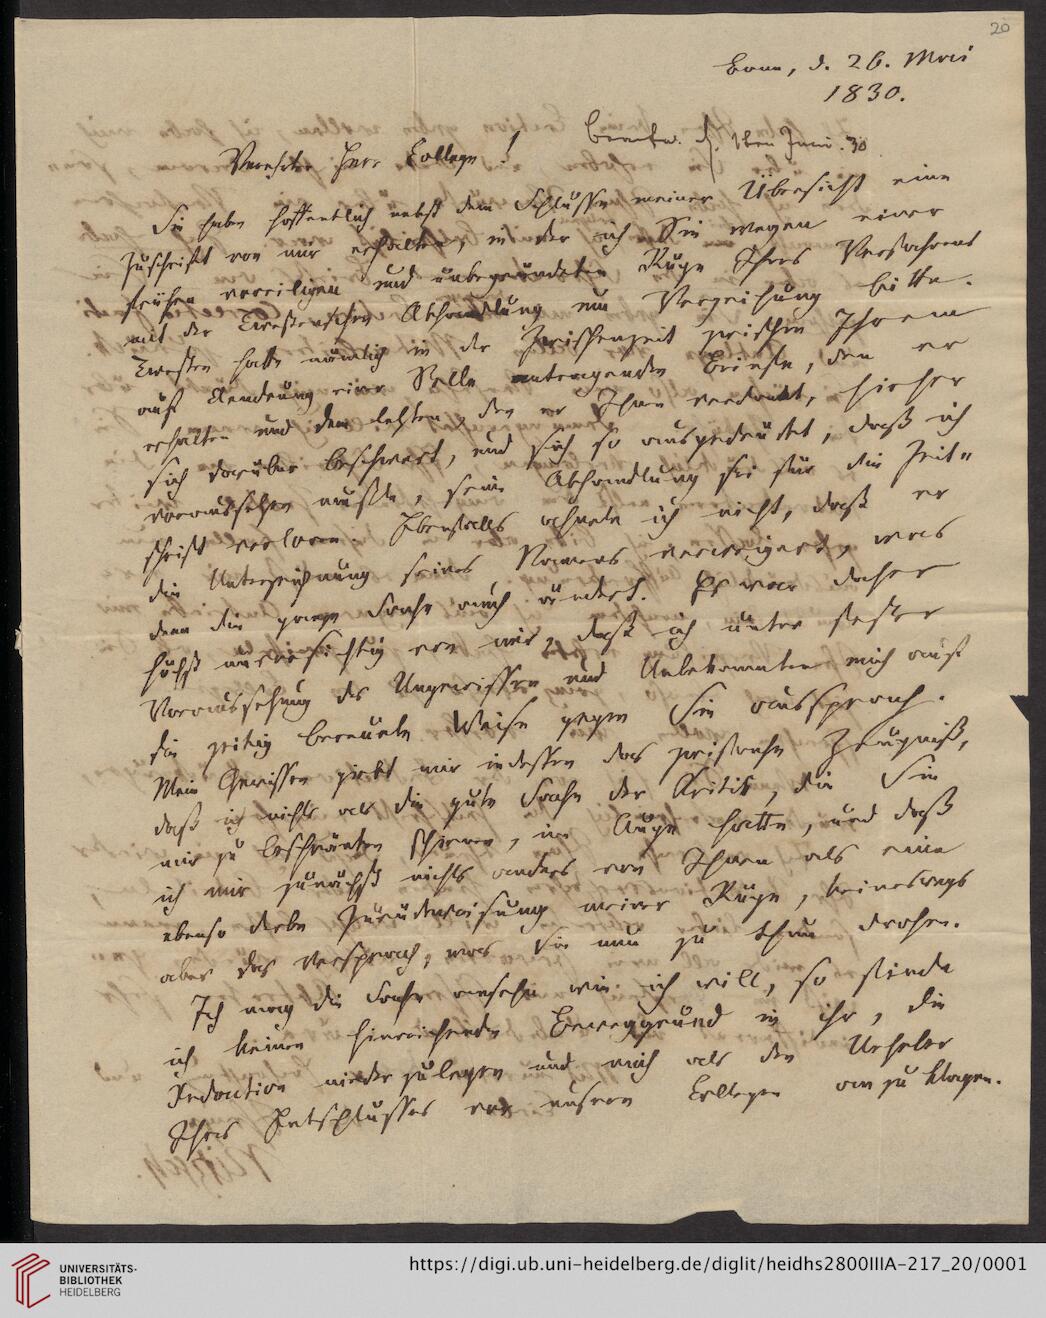 20
Bonn, d. 26. Mai
1830.
Beantw. d. 1ten Juni. 30
Verehrter Herr College!
Sie haben hoffentlich nebst dem Schlusse meiner Übersicht eine
Zuschrift von mir erhalten, in der ich Sie wegen einer
voreiligen und unbegründeten Rüge Ihres Verfahrens
mit der Twestenschen Abhandlung um Verzeihung bitte.
Twesten hatte nämlich in der Zwischenzeit zwischen Ihrem
auf Aenderung einer Stelle antragenden Briefe, den er
erhalten und dem letzten, den er Ihnen verdankt, hieher
sich darüber beschwert, und sich so ausgedrückt, daß ich
voraussetzen mußte, seine Abhandlung sei für die Zeit-
schrift verloren. Ebenfalls ahnete ich nicht, daß er
die Unterzeichnung seines Namens verweigert, was
denn die ganze Sache auch ändert. Es war daher
höchst unvorsichtig von mir, daß ich unter fester
Voraussetzung des Ungewissen und Unbekannten mich auf
die zeitig bereuete Weise gegen Sie aussprach.
Mein Gewissen giebt mir indessen das Zeugniß,
daß ich nichts als die gute Sache der Kritik, die Sie
mir zu beschränken schienen, im Auge hatte, und daß
ich mir zunächst nichts anders von Ihnen als eine
ebenso derbe Zurückweisung meiner Rüge, keineswegs
aber das versprach, was Sie nun zu thun drohen.
Ich mag die Sache ansehn wie ich will, so finde
ich keinen hinreichenden Beweggrund in ihr, die
Redaction niederzulegen und mich als den Urheber
Ihres Entschlusses vor unsern Collegen anzuklagen.
UNIVERSITÄTS-
BIBLIOTHEK
HEIDELBERG
https://digi.ub.uni-heidelberg.de/diglit/heidhs2800IIIA-217_20/0001